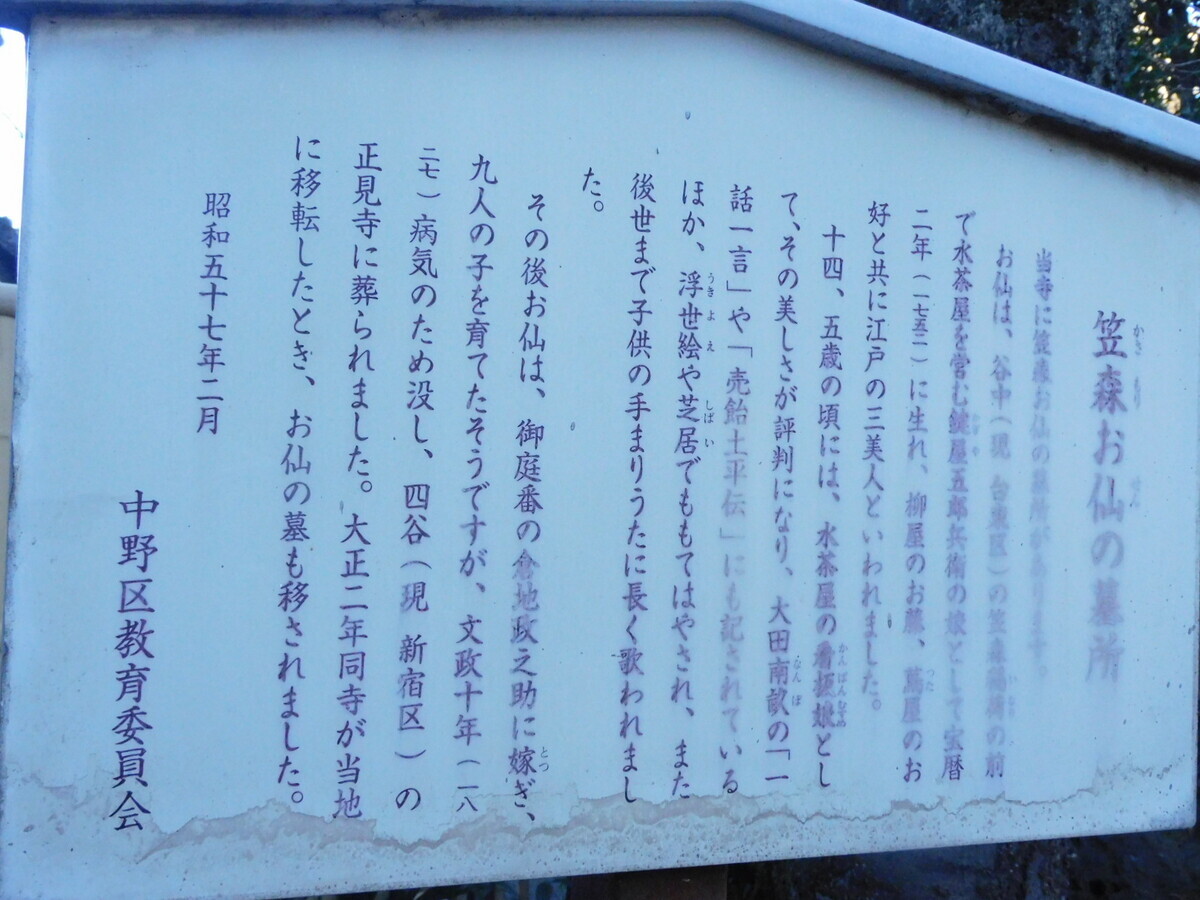 笠森お仙の墓所
当寺に笠森お仙の墓所があります。
お仙は、谷中(現 台東区)の笠森稲荷の前
で水茶屋を営む鍵屋五郎兵衛の娘として宝暦
二年(一七五二)に生れ、柳屋のお藤、蔦屋のお
好と共に江戸の三美人といわれました。
十四、五歳の頃には、水茶屋の看板娘とし
て、その美しさが評判になり、大田南畝の「一
話一言」や「売飴土平伝」にも記されている
ほか、浮世絵や芝居でももてはやされ、また
後世まで子供の手まりうたに長く歌われまし
た。
その後お仙は、御庭番の倉地政之助に嫁ぎ、
九人の子を育てたそうですが、文政十年(一八
二七)病気のため没し、四谷(現 新宿区)の
正見寺に葬られました。大正二年同寺が当地
に移転したとき、お仙の墓も移されました。
昭和五十七年二月
中野区教育委員会